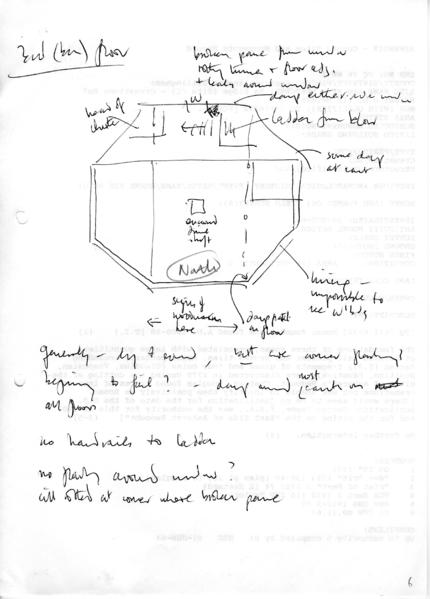 3rd (bin) floor
broken pane from window
rotty timber + floor adj.
+ leaks around window
damp either side window
head of
chute
W
ladder from below
some damp
at cant
North
lining —
impossible to
see w'bds
signs of
woodworm
here
damp patch
on floor
generally – dry & sound, but are corner flashings
beginning to fail? – damp around most cants on
all floors
no handrails to ladder
no flashing around window?
cill rotted at corner where broken pane
6